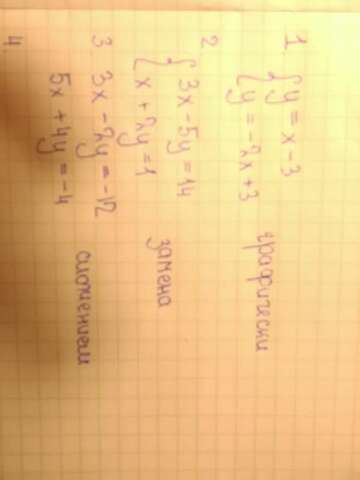 1 { y = x - 3
y = -2x + 3 графически
2 { 3x - 5y = 14
x + 2y = 1 замена
3 3x - 2y = -12
5x + 4y = -4 сложением
4